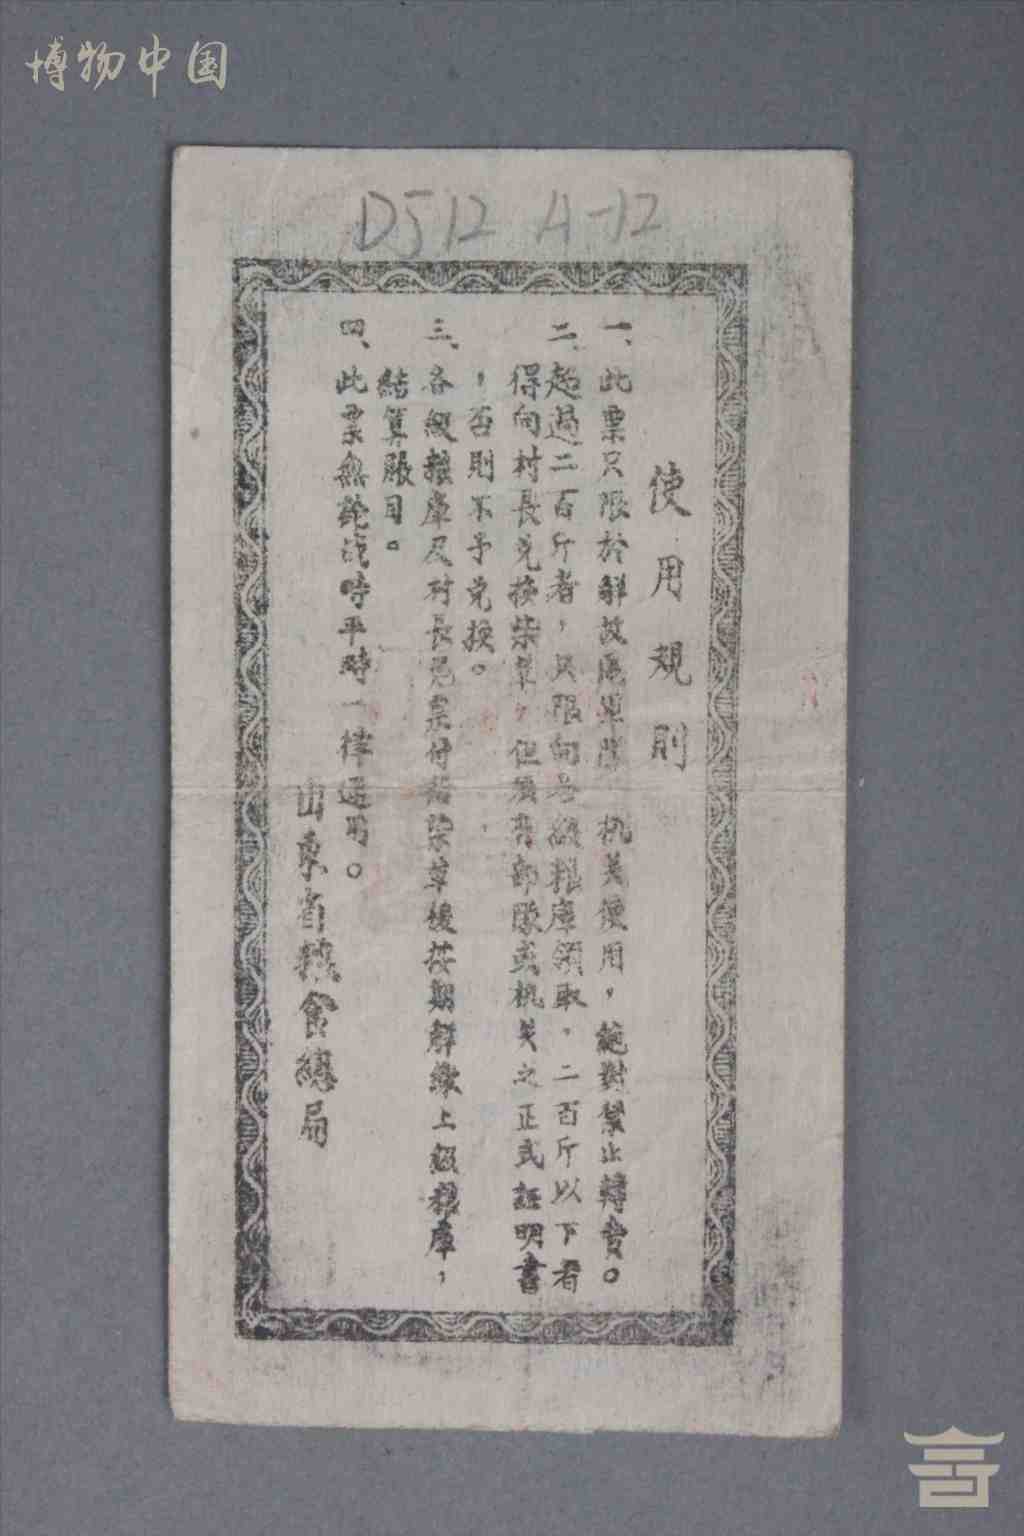 博物中国
DJ12 A-12
使用規則
一、此票只限於解放區軍隊 机关使用，絕對禁止轉賣。
二、超過二百斤者，只限向各級粮庫領取，二百斤以下者
得向村長兑换柴草，但須有部隊或机关之正式証明書
，否則不予兑換。
三、各級粮庫及村長見票付給柴草後按期解繳上級粮庫，
結算賬目。
四、此票無論战時平時一律通用。
山東省粮食總局